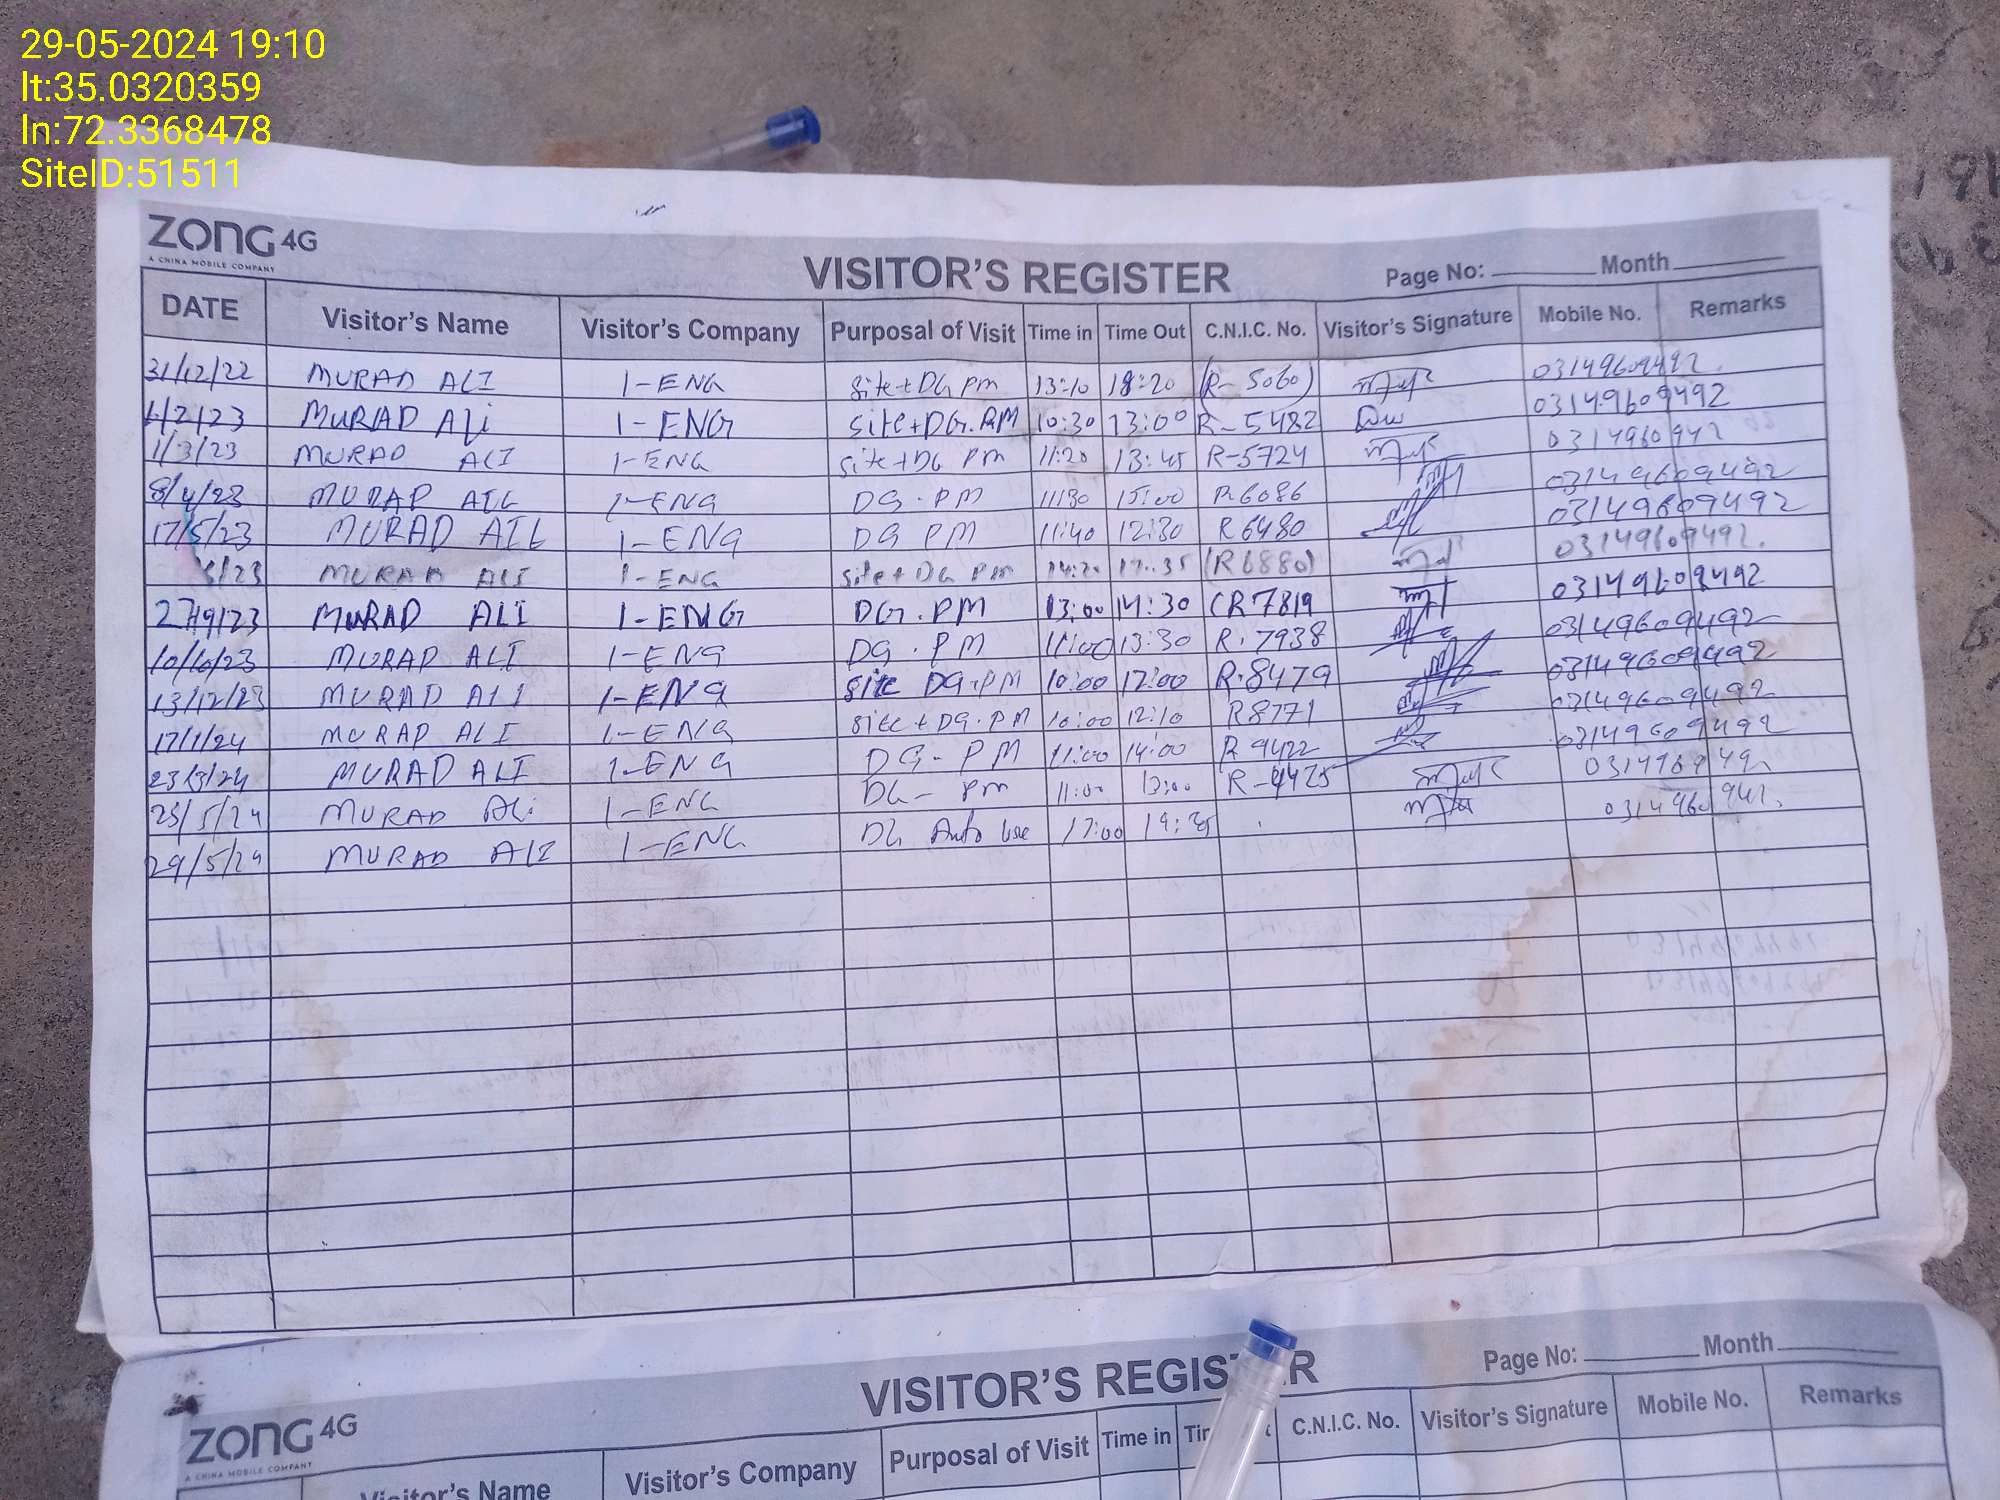 29-05-2024 19:10
lt:35.0320359
ln:72.3368478
SiteID:51511
ZONG 4G
A CHINA MOBILE COMPANY
VISITOR'S REGISTER Page No: Month
DATE Visitor's Name Visitor's Company Purposal of Visit Time in Time Out C.N.I.C. No. Visitor's Signature Mobile No. Remarks
31/12/22 MURAD ALI 1-ENG Site+DG PM 13:10 18:20 (R-5060) 03149609492.
1/2/23 MURAD ALi 1-ENG Site+DG.PM 10:30 13:00 R-5482 03149609492
1/3/23 MURAD ALI 1-ENG Site+DG PM 11:20 13:45 R-5724 0314960942
8/4/23 MURAD AIL 1-ENG DG.PM 11:30 15:00 R6086 03149609492
17/5/23 MURAD AIL 1-ENG DG PM 11:40 12:30 R6480 03149609492
/23 MURAD ALI 1-ENG Site+DG PM 14:20 17:35 (R6880) 03149609492.
27/9/23 MURAD ALI 1-ENG DG.PM 13:00 14:30 (R7819 03149609492
10/10/23 MURAD ALI 1-ENG DG.PM 11:00 13:30 R.7938 03149609492
13/12/23 MURAD ALI 1-ENG Site DG.PM 10:00 17:00 R.8479 03149609492
17/1/24 MURAD ALI 1-ENG Site+DG.PM 10:00 12:10 R8771 03149609492
23/3/24 MURAD ALI 1-ENG DG-PM 11:00 14:00 R9422 03149609492
25/5/24 MURAD ALi 1-ENG DG-PM 11:00 13:00 R-9425
29/5/24 MURAD ALI 1-ENG DG Auto 17:00
ZONG 4G
A CHINA MOBILE COMPANY
VISITOR'S REGIS R Page No: Month
Visitor's Name Visitor's Company Purposal of Visit Time in C.N.I.C. No. Visitor's Signature Mobile No. Remarks